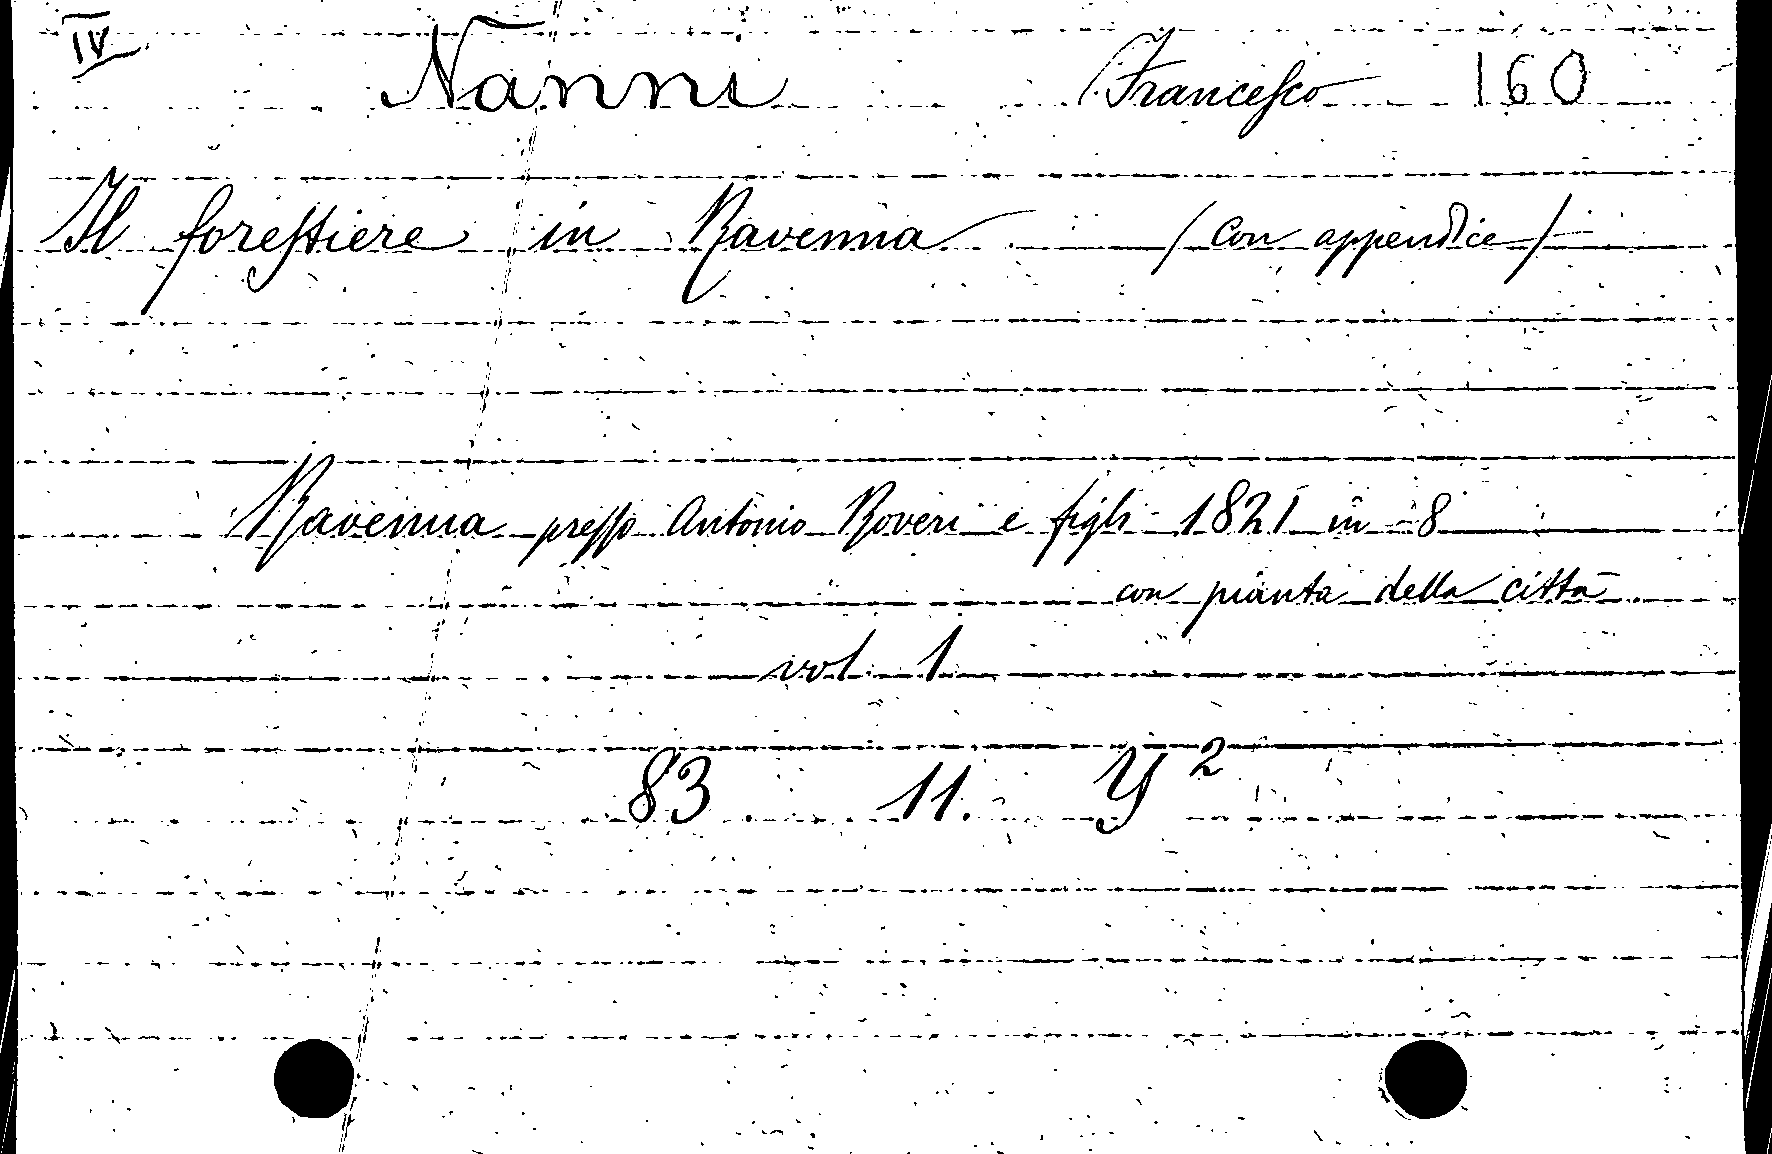 IV Nanni Francesco 160
Il forestiere in Ravenna (con appendice)
Ravenna presso Antonio Roveri e figli 1821 in 8
con pianta della città
vol. 1
83 11. Y²